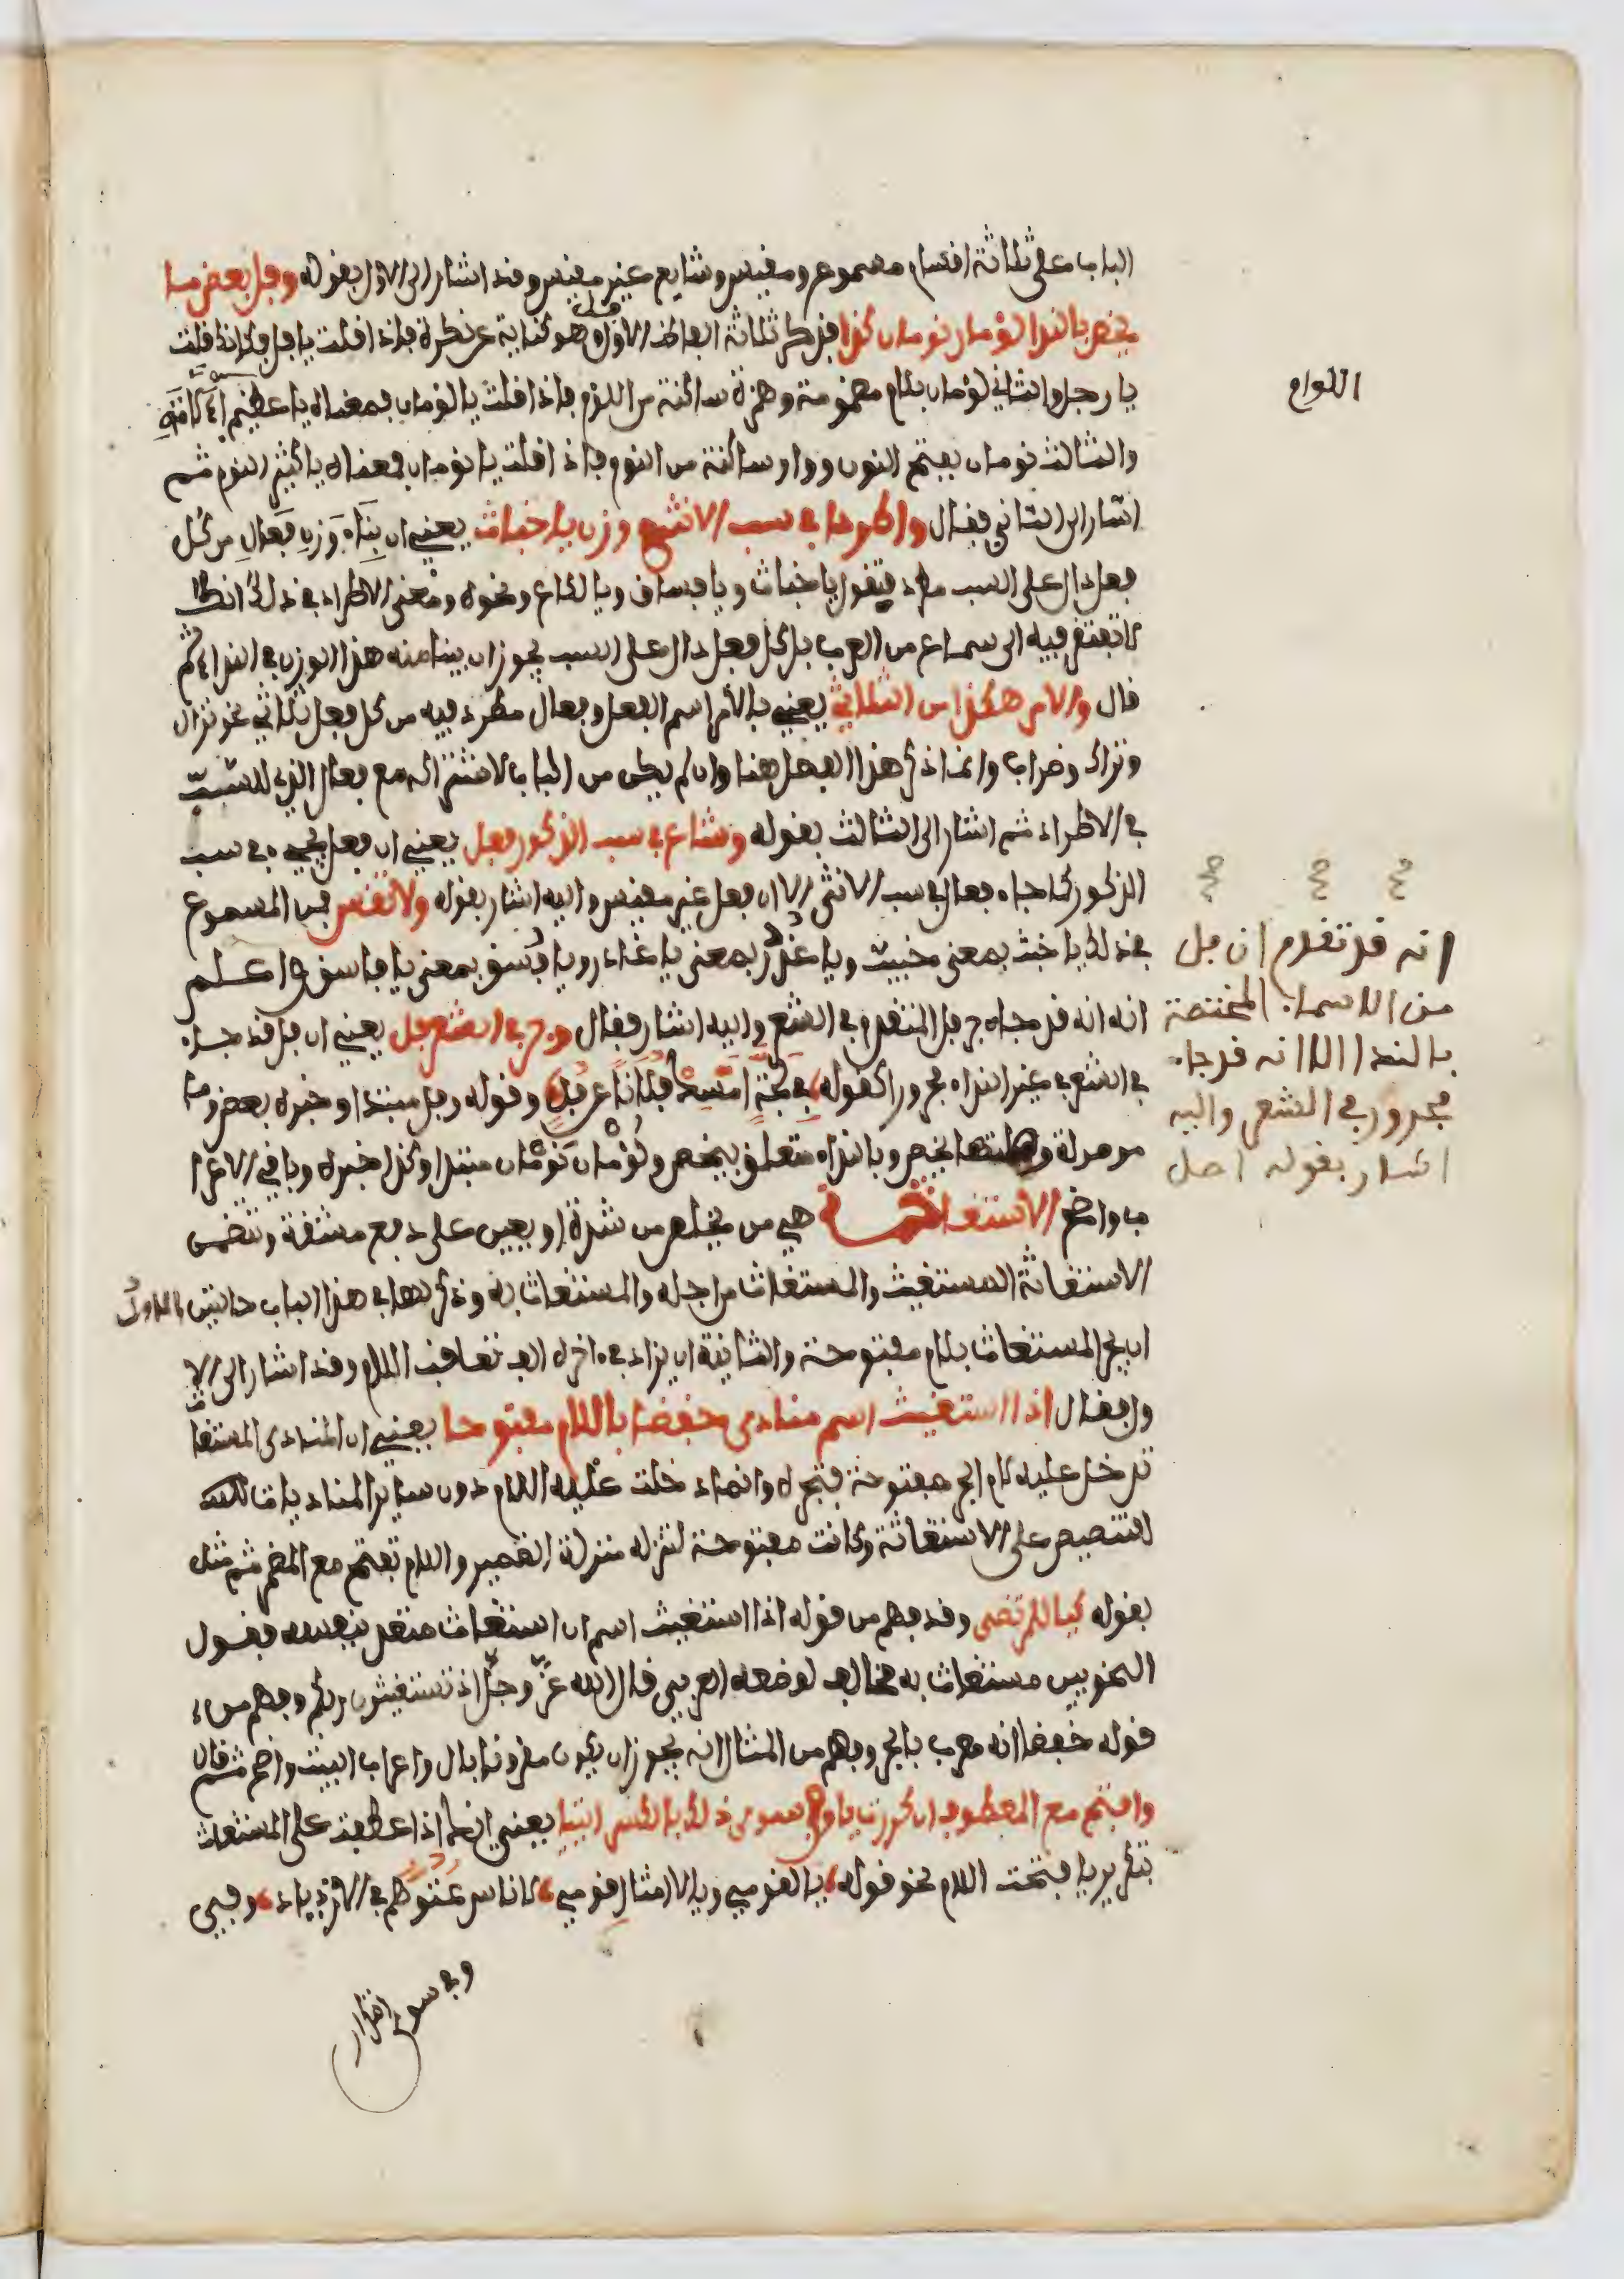 الباب على ثلاثة اقسام مسموع ومقيس وشايع غير مقيس وقد اشار الى الاول بقوله وفل بعض ما
يخص بالندا لؤمان نومان كذا فذكر ثلاثة الفاظ الاول فل وهو كناية عن نكرة فاذا قلت يا فل فكانك قلت
يا رجل والثاني لؤمان بلام مضمومة وهمزة ساكنة من اللؤم فاذا قلت يا لؤمان فمعناه يا عظيم
والثالث نومان بفتح النون وواو ساكنة من النوم فاذا قلت يا نومان فمعناه يا كثير النوم ثم
اشار الى الثاني فقال واطردا في سب الانثى وزن يا خباث يعني ان بناء وزن فعال من كل
فعل دال على السب مطرد فيقول يا خباث ويا فساق ويا لكاع ونحوه ومعنى الاطراد في ذلك انك
لا تفتقر فيه الى سماع من العرب بل كل فعل دال على السب يجوز ان يبنا منه هذا الوزن في النداء ثم
قال والامر هكذا من الثلاثي يعني بالامر اسم الفعل وفعال مطرد فيه من كل فعل ثلاثي نحو نزال
وتراك وضراب وانما ذكر هذا الفصل هنا وان لم يكن من الباب لاشتراكه مع فعال الذي للسب
في الاطراد ثم اشار الى الثالث بقوله وشاع في سب الذكور فعل يعني ان فعل يجيء في سب
الذكور كما جاء فعال في سب الانثى الا ان فعل غير مقيس واليه اشار بقوله ولا تقس فمن المسموع
في ذلك يا خبث بمعنى خبيث ويا غدر بمعنى يا غادر ويا فسق بمعنى يا فاسق واعلم
انه انه قد جاء جر فل المتقدم في الشعر واليه اشار فقال وجر في الشعر فل يعني ان فل قد جاء
في الشعر في غير النداء مجرورا كقوله في لجة امسك فلانا عن فل وقوله وفل مبتدا وخبره بعض وما
موصولة وصلتها يخص وبالنداء متعلق بيخص ولؤمان نومان مبتدا وكذا خبره وباقي الاعرا
ب واضح الاستغاثة هي من يخلص من شدة او يعين على دفع مشقة وتتضمن
الاستغاثة المستغيث والمستغاث من اجله والمستغاث به وذكر لها في هذا الباب حالتين الاولى
ان يجر المستغاث بلام مفتوحة والثانية ان يزاد في اخره الف تعاقب اللام وقد اشار الى الا
ول فقال اذا استغيث اسم منادى خفضا باللام مفتوحا يعني ان المنادى المستغاث
تدخل عليه لام الجر مفتوحة فتجره وانما دخلت عليه اللام دون ساير المناديات
للتنصيص على الاستغاثة وكانت مفتوحة لتنزله منزلة الضمير واللام تفتح مع المضمر ثم مثل
بقوله كيا للمرتضى وقد فهم من قوله اذا استغيث اسم ان استغاث متعد بنفسه فقول
النحويين مستغاث به مخالف لوضعه العربي قال الله عز وجل اذ تستغيثون ربكم وفهم من
قوله خفضا انه معرب بالجر وفهم من المثال انه يجوز ان يكون مقرونا بال واعراب البيت واضح ثم قال
وافتح مع المعطوف ان كررت يا وفي سوى ذلك بالكسر ائتيا يعني انك اذا عطفت على المستغاث
بتكرير يا فتحت اللام نحو قوله يا لقومي ويا لامثال قومي لاناس عتوهم في الازدياد وفهي
وفي سوى اقرار
اللوام
انه قد تقدم ان فل
من الاسماء المختصة
بالندا الا انه قد جاء
مجرور في الشعر واليه
اشار بقوله اصل